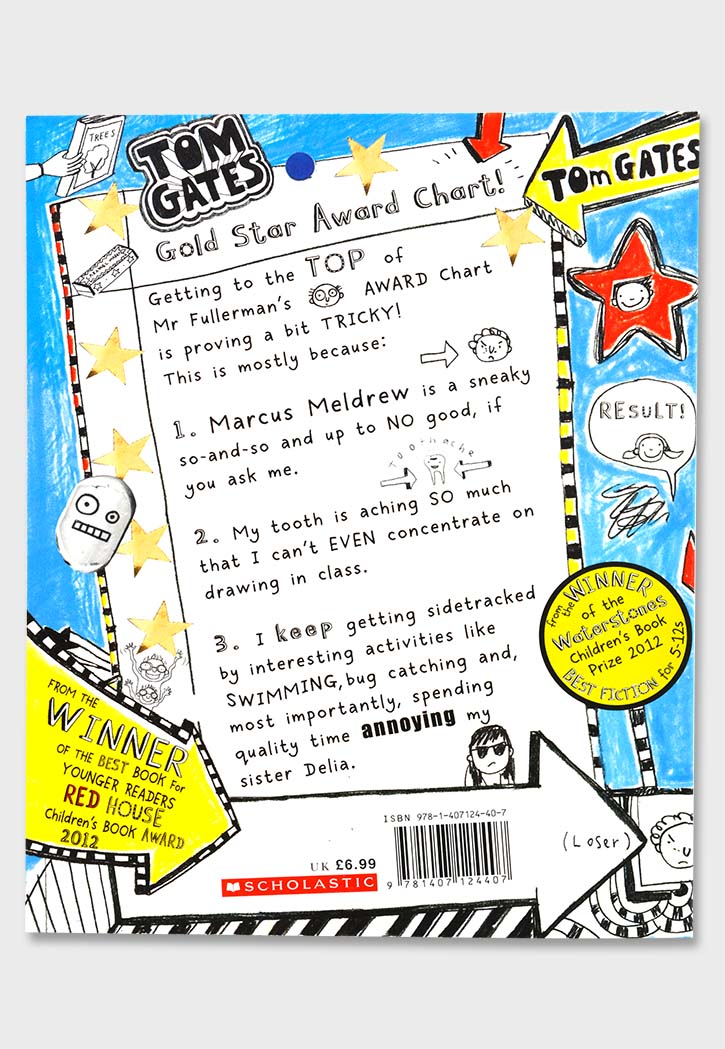 TREES
TOM
GATES
TOM GATES
Gold Star Award Chart!
CARAMEL WAFER
Getting to the TOP of
Mr Fullerman's AWARD Chart
is proving a bit TRICKY!
This is mostly because:
1. Marcus Meldrew is a sneaky
so-and-so and up to NO good, if
you ask me.
Toothache
2. My tooth is aching SO much
that I can't EVEN concentrate on
drawing in class.
3. I keep getting sidetracked
by interesting activities like
SWIMMING, bug catching and,
most importantly, spending
quality time annoying my
sister Delia.
RESULT!
from the WINNER
of the
Waterstones
Children's Book
Prize 2012
BEST FICTION for 5-12s
FROM THE
WINNER
OF THE BEST BOOK for
YOUNGER READERS
RED HOUSE
Children's Book AWARD
2012
ISBN 978-1-407124-40-7
9 781407 124407
UK £6.99
SCHOLASTIC
(Loser)